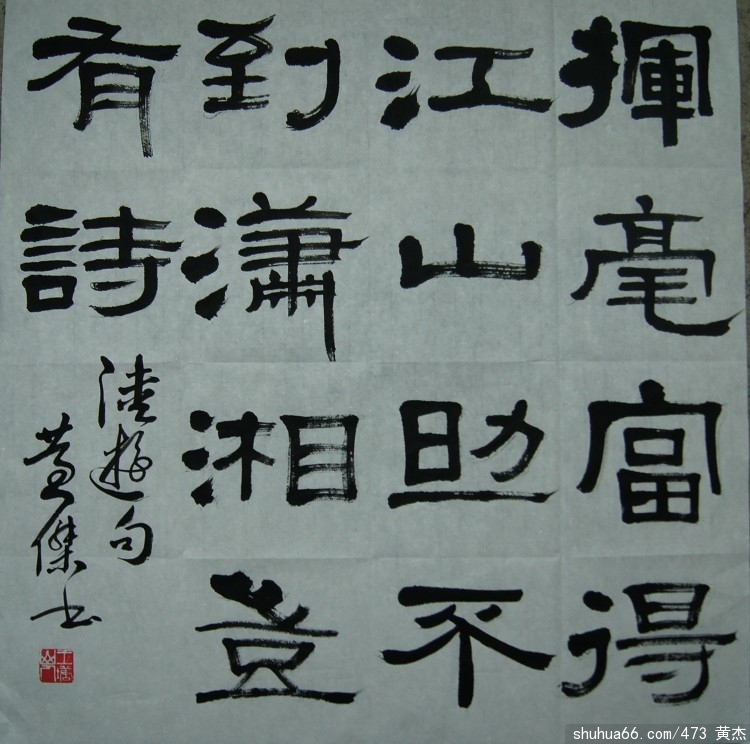 揮毫富得
江山助不
到瀟湘豈
有詩
陸游句
黄傑书
shuhua66.com/473 黄杰